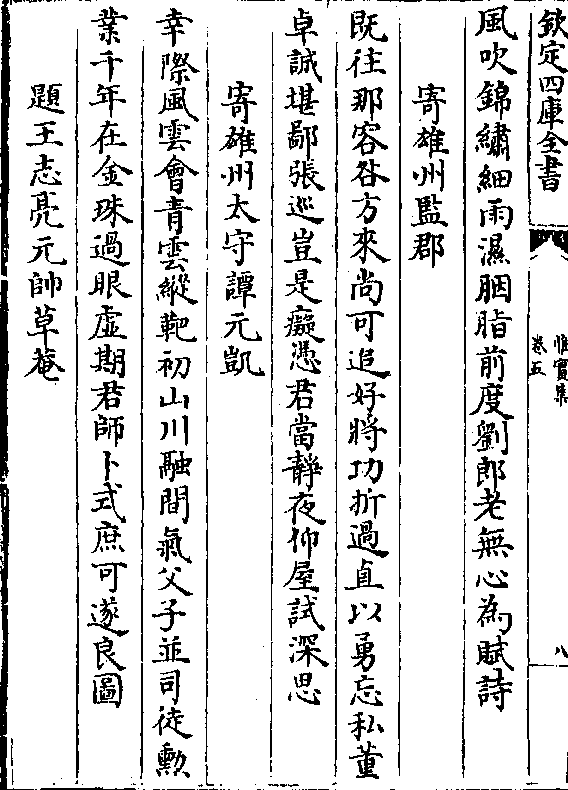 欽定四庫全書
惟實集
卷五
八
風吹錦繡細雨濕胭脂前度劉郎老無心為賦詩
寄雄州監郡
既往那容咎方來尚可追好將功折過直以勇忘私董
卓誠堪鄙張巡豈是癡憑君當靜夜仰屋試深思
寄雄州太守譚元凱
幸際風雲會青雲縱靶初山川融間氣父子並司徒勲
業千年在金珠過眼虛期君師卜式庶可遂良圖
題王志亮元帥草菴